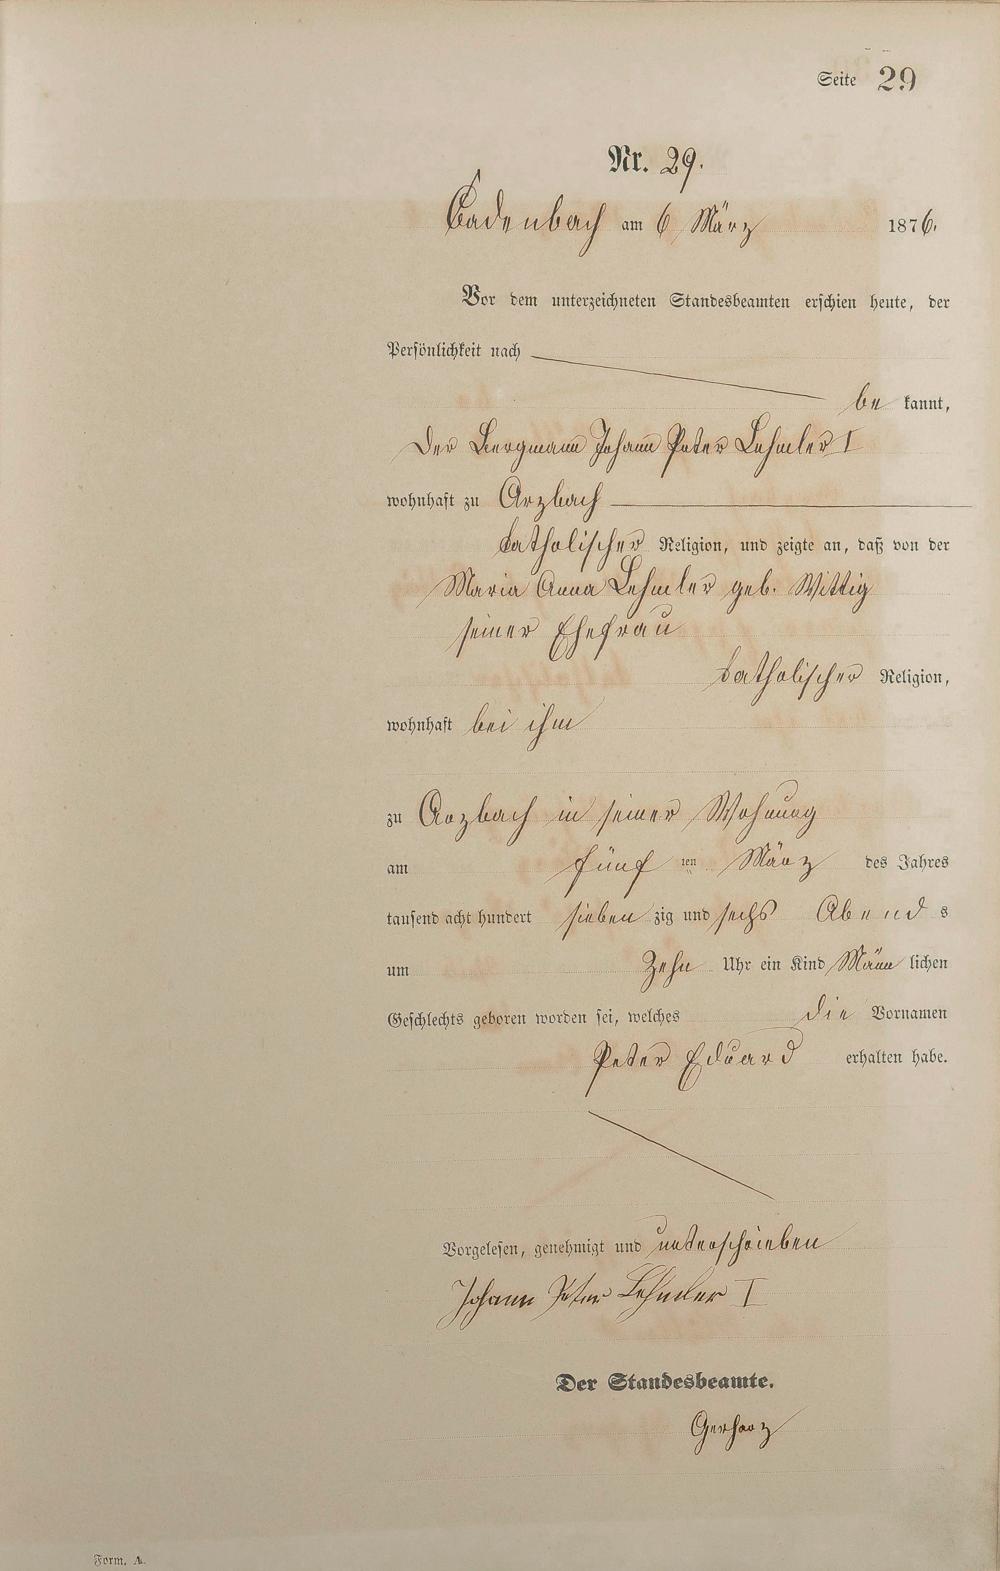 Seite 29
Nr. 29.
Cadenbach am 6 März 1876.
Vor dem unterzeichneten Standesbeamten erschien heute, der
Persönlichkeit nach
be kannt,
der Bergmann Johann Peter Lehmler I
wohnhaft zu Arzbach
katholischer Religion, und zeigte an, daß von der
Maria Anna Lehmler geb. Wittig
seiner Ehefrau
katholischer Religion,
wohnhaft bei ihm
zu Arzbach in seiner Wohnung
am fünf ten März des Jahres
tausend acht hundert sieben zig und sechs Abend s
um Zehn Uhr ein Kind Männ lichen
Geschlechts geboren worden sei, welches die Vornamen
Peter Eduard erhalten habe.
Vorgelesen, genehmigt und unterschrieben
Johann Peter Lehmler I
Der Standesbeamte.
Gerharz
Form. A.